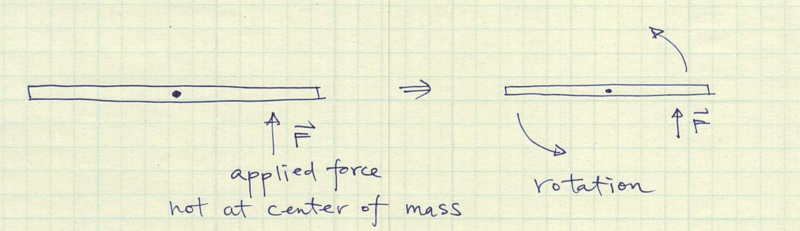 F
applied force
not at center of mass
⇒
F
rotation